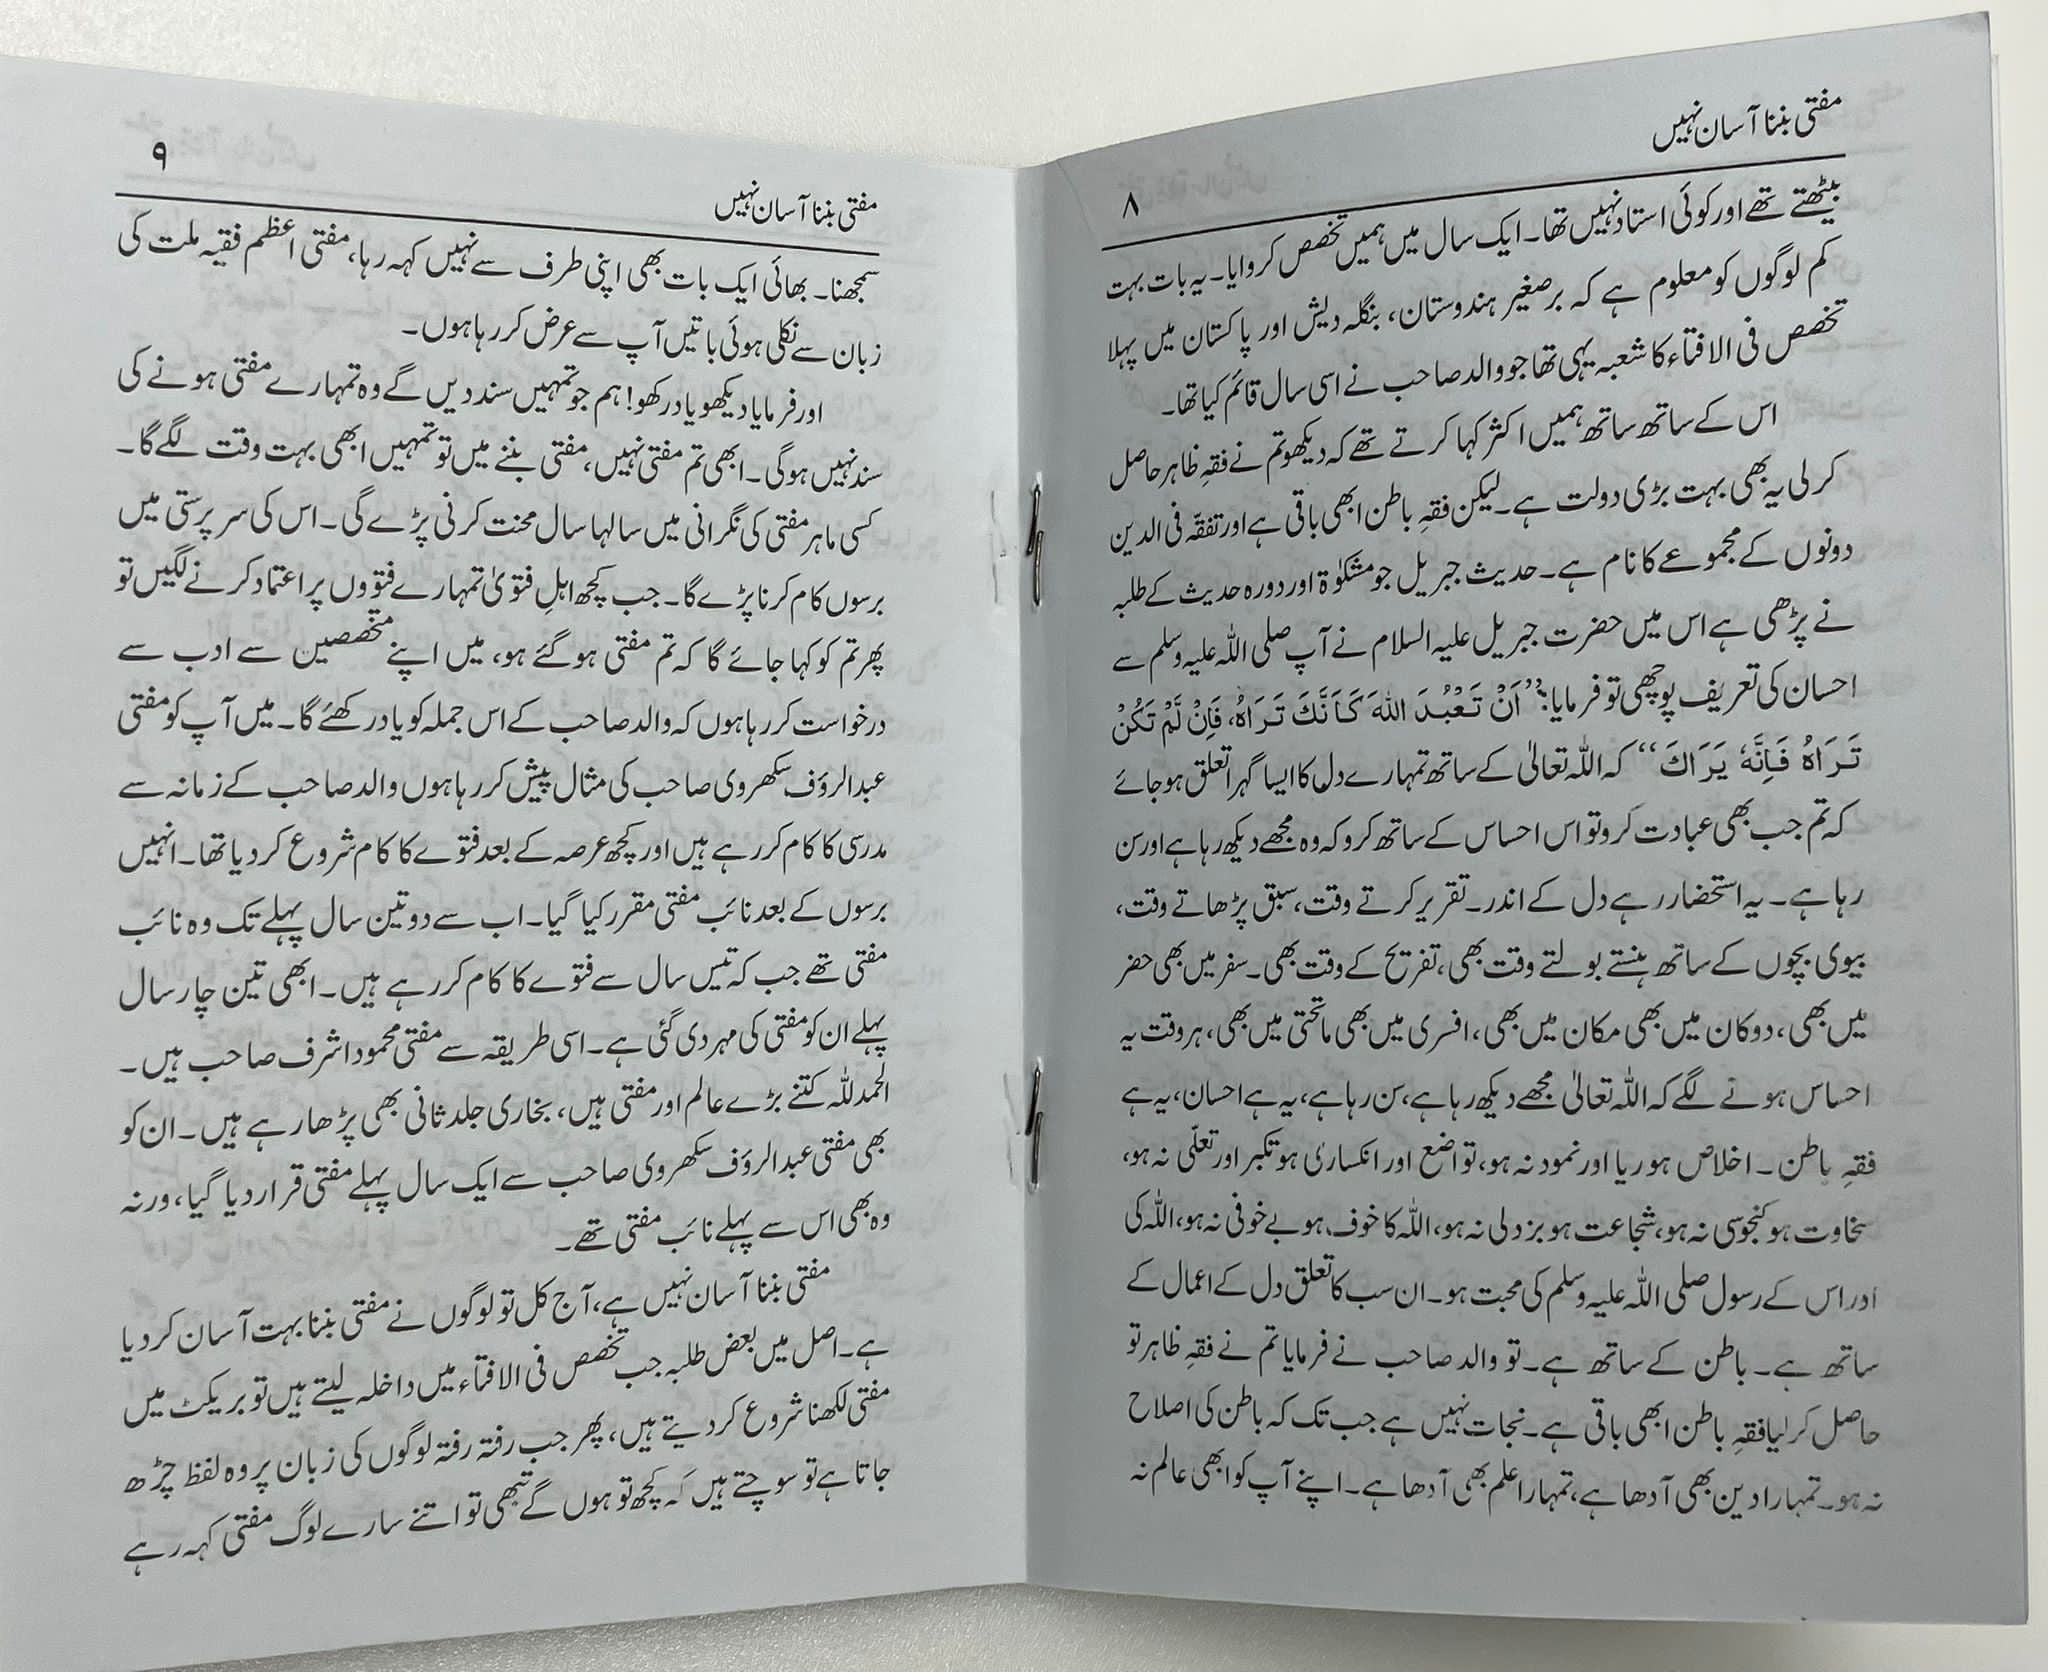 مفتی بننا آسان نہیں
۸
بیٹھتے تھے اور کوئی استاد نہیں تھا۔ ایک سال میں ہمیں تخصص کروایا۔ یہ بات بہت
کم لوگوں کو معلوم ہے کہ برصغیر ہندوستان، بنگلہ دیش اور پاکستان میں پہلا
تخصص فی الافتاء کا شعبہ یہی تھا جو والد صاحب نے اسی سال قائم کیا تھا۔
اس کے ساتھ ساتھ ہمیں اکثر کہا کرتے تھے کہ دیکھو تم نے فقہِ ظاہر حاصل
کر لی یہ بھی بہت بڑی دولت ہے۔ لیکن فقہِ باطن ابھی باقی ہے اور تفقّہ فی الدین
دونوں کے مجموعے کا نام ہے۔ حدیث جبریل جو مشکوٰۃ اور دورہ حدیث کے طلبہ
نے پڑھی ہے اس میں حضرت جبریل علیہ السلام نے آپ صلی اللہ علیہ وسلم سے
احسان کی تعریف پوچھی تو فرمایا: ’’اَنْ تَعْبُدَ اللہَ کَاَنَّکَ تَرَاہُ، فَاِنْ لَّمْ تَکُنْ
تَرَاہُ فَاِنَّہٗ یَرَاکَ‘‘ کہ اللہ تعالیٰ کے ساتھ تمہارے دل کا ایسا گہرا تعلق ہو جائے
کہ تم جب بھی عبادت کرو تو اس احساس کے ساتھ کرو کہ وہ مجھے دیکھ رہا ہے اور سن
رہا ہے۔ یہ استحضار رہے دل کے اندر۔ تقریر کرتے وقت، سبق پڑھاتے وقت،
بیوی بچوں کے ساتھ ہنستے بولتے وقت بھی، تفریح کے وقت بھی۔ سفر میں بھی حضر
میں بھی، دوکان میں بھی مکان میں بھی، افسری میں بھی ماتحتی میں بھی، ہر وقت یہ
احساس ہونے لگے کہ اللہ تعالیٰ مجھے دیکھ رہا ہے، سن رہا ہے، یہ ہے احسان، یہ ہے
فقہِ باطن۔ اخلاص ہو ریا اور نمود نہ ہو، تواضع اور انکساری ہو تکبر اور تعلّی نہ ہو،
سخاوت ہو کنجوسی نہ ہو، شجاعت ہو بزدلی نہ ہو، اللہ کا خوف ہو بے خوفی نہ ہو، اللہ کی
اور اس کے رسول صلی اللہ علیہ وسلم کی محبت ہو۔ ان سب کا تعلق دل کے اعمال کے
ساتھ ہے۔ باطن کے ساتھ ہے۔ تو والد صاحب نے فرمایا تم نے فقہِ ظاہر تو
حاصل کر لیا فقہِ باطن ابھی باقی ہے۔ نجات نہیں ہے جب تک کہ باطن کی اصلاح
نہ ہو۔ تمہارا دین بھی آدھا ہے، تمہارا علم بھی آدھا ہے۔ اپنے آپ کو ابھی عالم نہ
مفتی بننا آسان نہیں
۹
سمجھنا۔ بھائی ایک بات بھی اپنی طرف سے نہیں کہہ رہا، مفتی اعظم فقیہ ملت کی
زبان سے نکلی ہوئی باتیں آپ سے عرض کر رہا ہوں۔
اور فرمایا دیکھو یاد رکھو! ہم جو تمہیں سند دیں گے وہ تمہارے مفتی ہونے کی
سند نہیں ہوگی۔ ابھی تم مفتی نہیں، مفتی بننے میں تو تمہیں ابھی بہت وقت لگے گا۔
کسی ماہر مفتی کی نگرانی میں سالہا سال محنت کرنی پڑے گی۔ اس کی سرپرستی میں
برسوں کام کرنا پڑے گا۔ جب کچھ اہلِ فتویٰ تمہارے فتووں پر اعتماد کرنے لگیں تو
پھر تم کو کہا جائے گا کہ تم مفتی ہو گئے ہو، میں اپنے متخصصین سے ادب سے
درخواست کر رہا ہوں کہ والد صاحب کے اس جملہ کو یاد رکھئے گا۔ میں آپ کو مفتی
عبدالرؤف سکھروی صاحب کی مثال پیش کر رہا ہوں والد صاحب کے زمانہ سے
مدرسی کا کام کر رہے ہیں اور کچھ عرصہ کے بعد فتوے کا کام شروع کر دیا تھا۔ انہیں
برسوں کے بعد نائب مفتی مقرر کیا گیا۔ اب سے دو تین سال پہلے تک وہ نائب
مفتی تھے جب کہ تیس سال سے فتوے کا کام کر رہے ہیں۔ ابھی تین چار سال
پہلے ان کو مفتی کی مہر دی گئی ہے۔ اسی طریقہ سے مفتی محمود اشرف صاحب ہیں۔
الحمدللہ کتنے بڑے عالم اور مفتی ہیں، بخاری جلد ثانی بھی پڑھا رہے ہیں۔ ان کو
بھی مفتی عبدالرؤف سکھروی صاحب سے ایک سال پہلے مفتی قرار دیا گیا، ورنہ
وہ بھی اس سے پہلے نائب مفتی تھے۔
مفتی بننا آسان نہیں ہے، آج کل تو لوگوں نے مفتی بننا بہت آسان کر دیا
ہے۔ اصل میں بعض طلبہ جب تخصص فی الافتاء میں داخلہ لیتے ہیں تو بریکٹ میں
مفتی لکھنا شروع کر دیتے ہیں، پھر جب رفتہ رفتہ لوگوں کی زبان پر وہ لفظ چڑھ
جاتا ہے تو سوچتے ہیں کہ کچھ تو ہوں گے تبھی تو اتنے سارے لوگ مفتی کہہ رہے